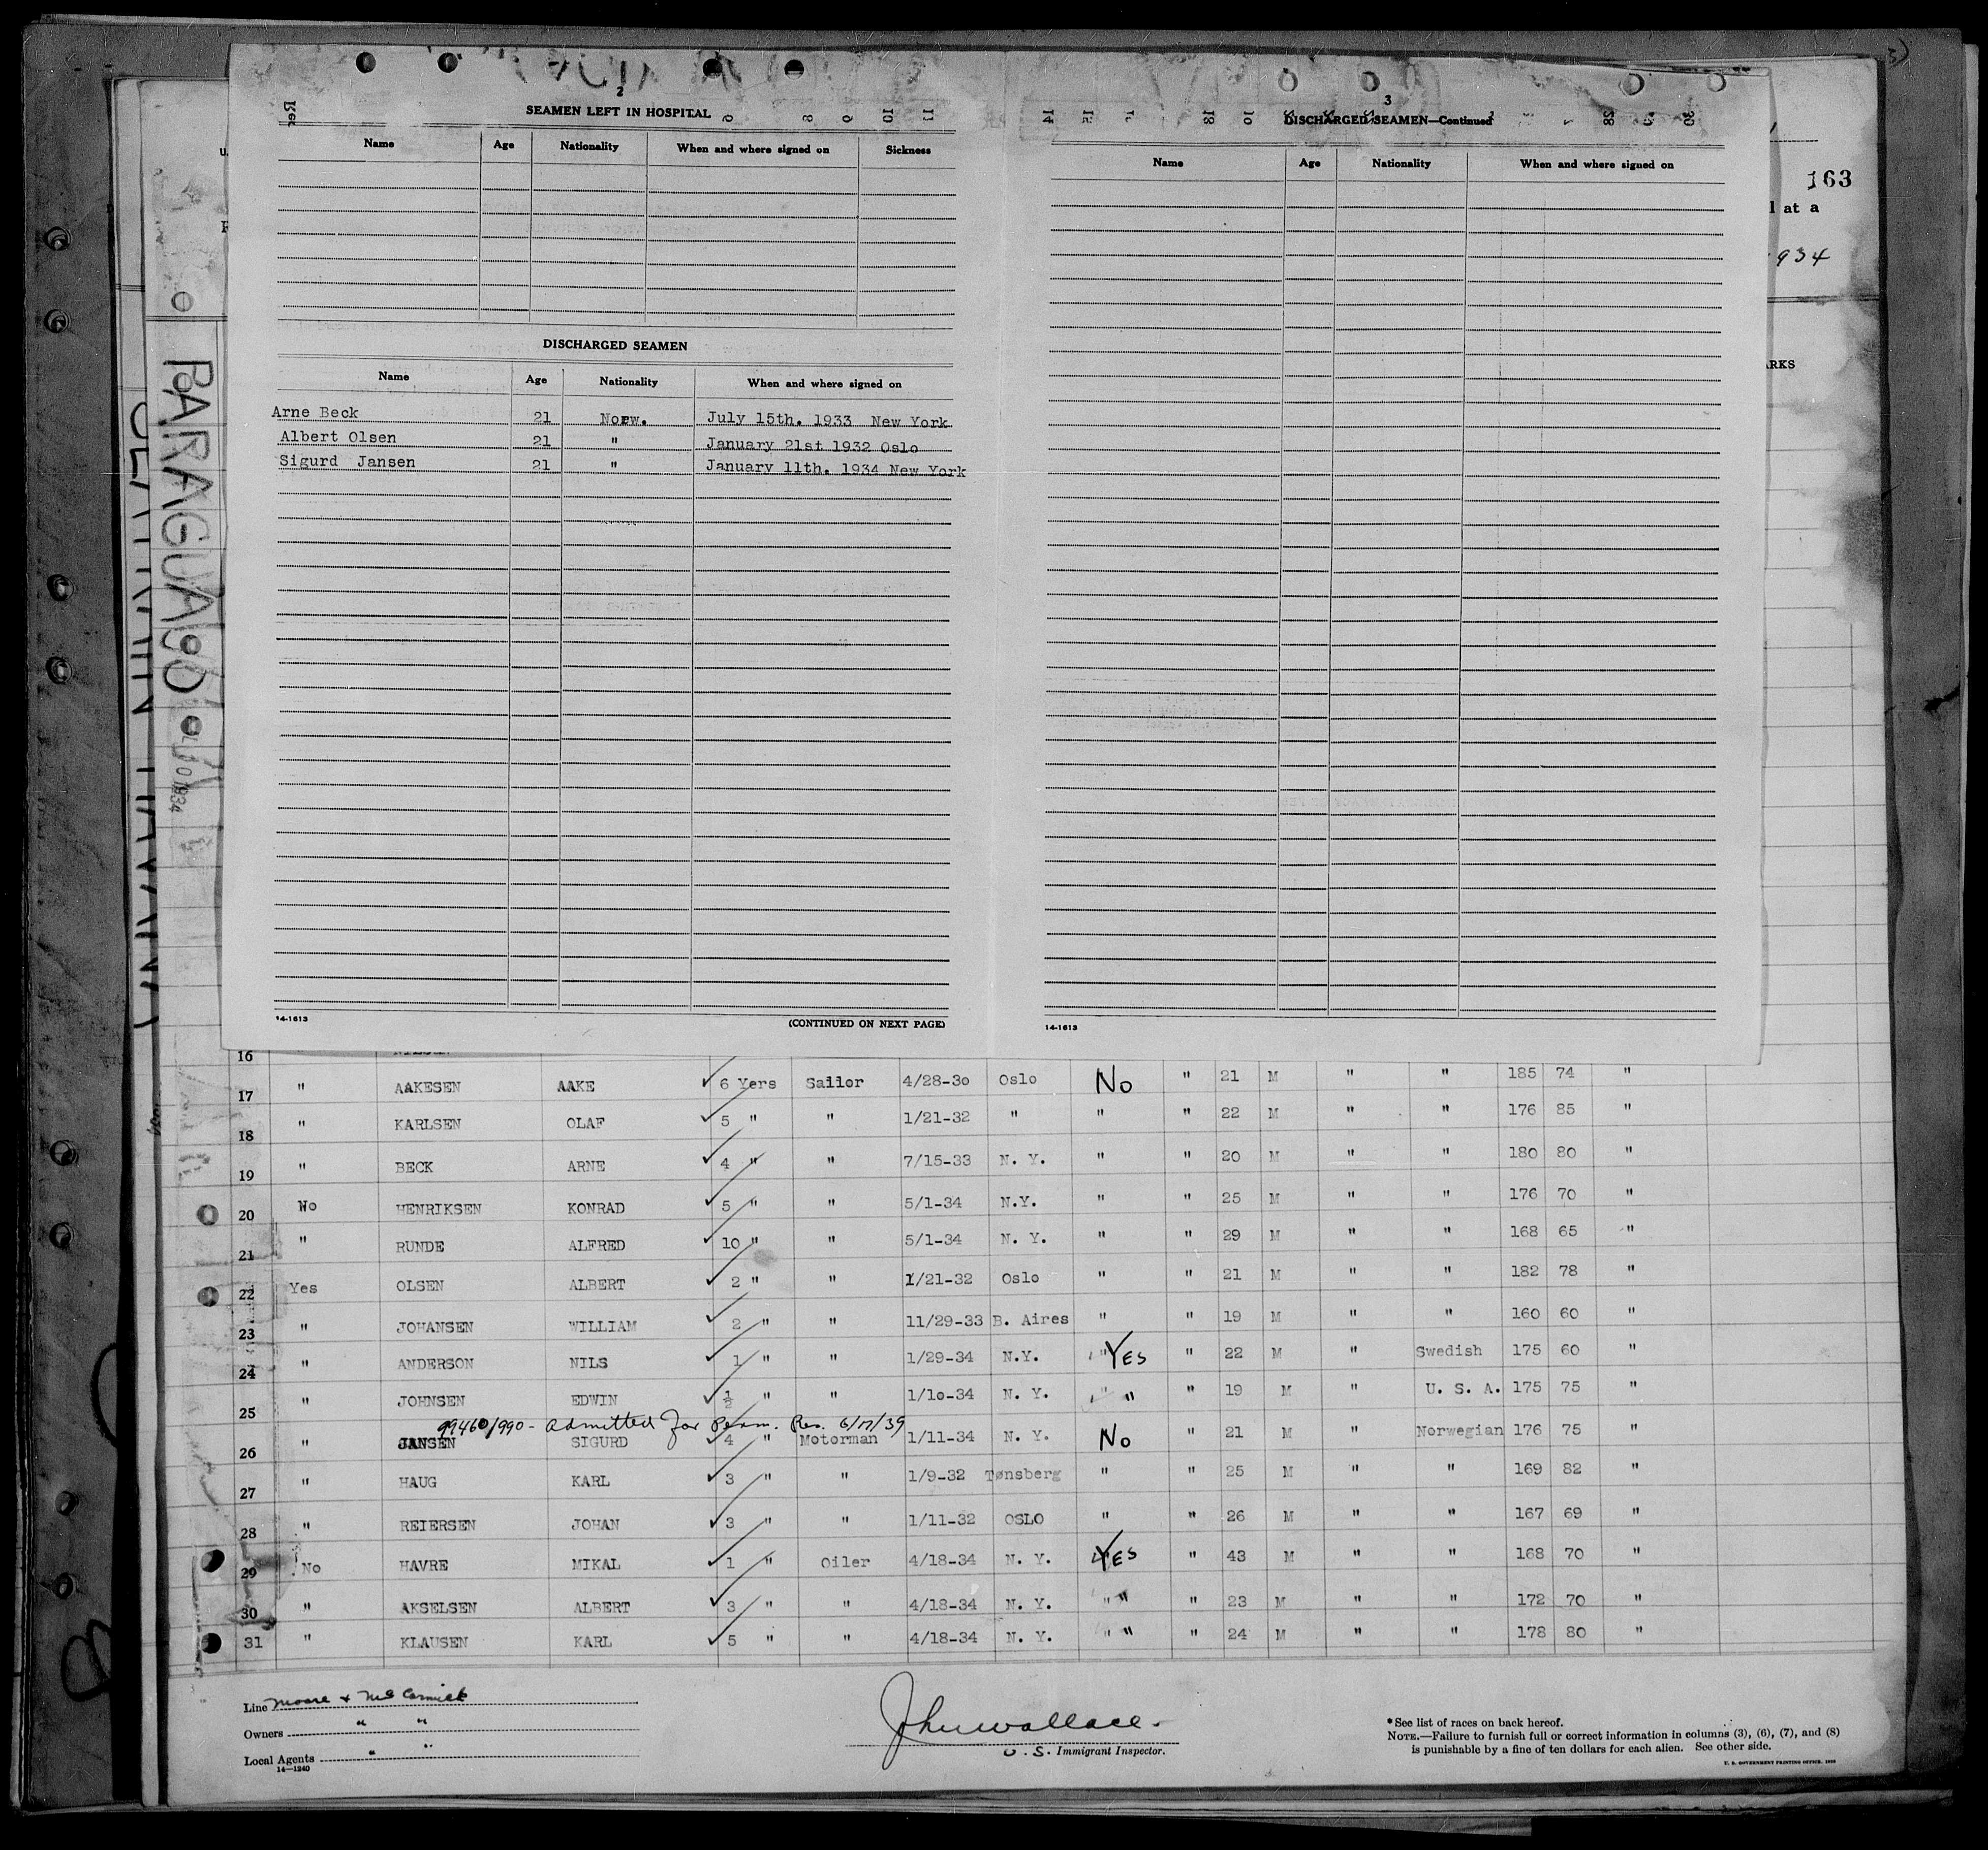 2
SEAMEN LEFT IN HOSPITAL
Name Age Nationality When and where signed on Sickness
DISCHARGED SEAMEN
Name Age Nationality When and where signed on
Arne Beck 21 Norw. July 15th. 1933 New York
Albert Olsen 21 " January 21st 1932 Oslo
Sigurd Jansen 21 " January 11th. 1934 New York
14-1613
(CONTINUED ON NEXT PAGE)
3
DISCHARGED SEAMEN—Continued
Name Age Nationality When and where signed on
14-1613
163
l at a
934
ARKS
PARAGUAYO
1934
16
17 " AAKESEN AAKE 6 Yers Sailor 4/28-30 Oslo No " 21 M " " 185 74 "
18 " KARLSEN OLAF 5 " " 1/21-32 " " " 22 M " " 176 85 "
19 " BECK ARNE 4 " " 7/15-33 N. Y. " " 20 M " " 180 80 "
20 No HENRIKSEN KONRAD 5 " " 5/1-34 N.Y. " " 25 M " " 176 70 "
21 " RUNDE ALFRED 10 " " 5/1-34 N. Y. " " 29 M " " 168 65 "
22 Yes OLSEN ALBERT 2 " " 1/21-32 Oslo " " 21 M " " 182 78 "
23 " JOHANSEN WILLIAM 2 " " 11/29-33 B. Aires " " 19 M " " 160 60 "
24 " ANDERSON NILS 1 " " 1/29-34 N.Y. YES " 22 M " Swedish 175 60 "
25 " JOHNSEN EDWIN ½ " " 1/10-34 N. Y. " " 19 M " U. S. A. 175 75 "
99460/990 - Admitted for Perm. Res. 6/17/39
26 " JANSEN SIGURD 4 " Motorman 1/11-34 N. Y. No " 21 M " Norwegian 176 75 "
27 " HAUG KARL 3 " " 1/9-32 Tønsberg " " 25 M " " 169 82 "
28 " REIERSEN JOHAN 3 " " 1/11-32 OSLO " " 26 M " " 167 69 "
29 No HAVRE MIKAL 1 " Oiler 4/18-34 N. Y. YES " 43 M " " 168 70 "
30 " AKSELSEN ALBERT 3 " " 4/18-34 N. Y. " " 23 M " " 172 70 "
31 " KLAUSEN KARL 5 " " 4/18-34 N. Y. " " 24 M " " 178 80 "
Line Moore & McCormick
Owners " "
Local Agents " "
14-1240
John Wallace
U. S. Immigrant Inspector.
*See list of races on back hereof.
NOTE.—Failure to furnish full or correct information in columns (3), (6), (7), and (8)
is punishable by a fine of ten dollars for each alien. See other side.
U. S. GOVERNMENT PRINTING OFFICE.